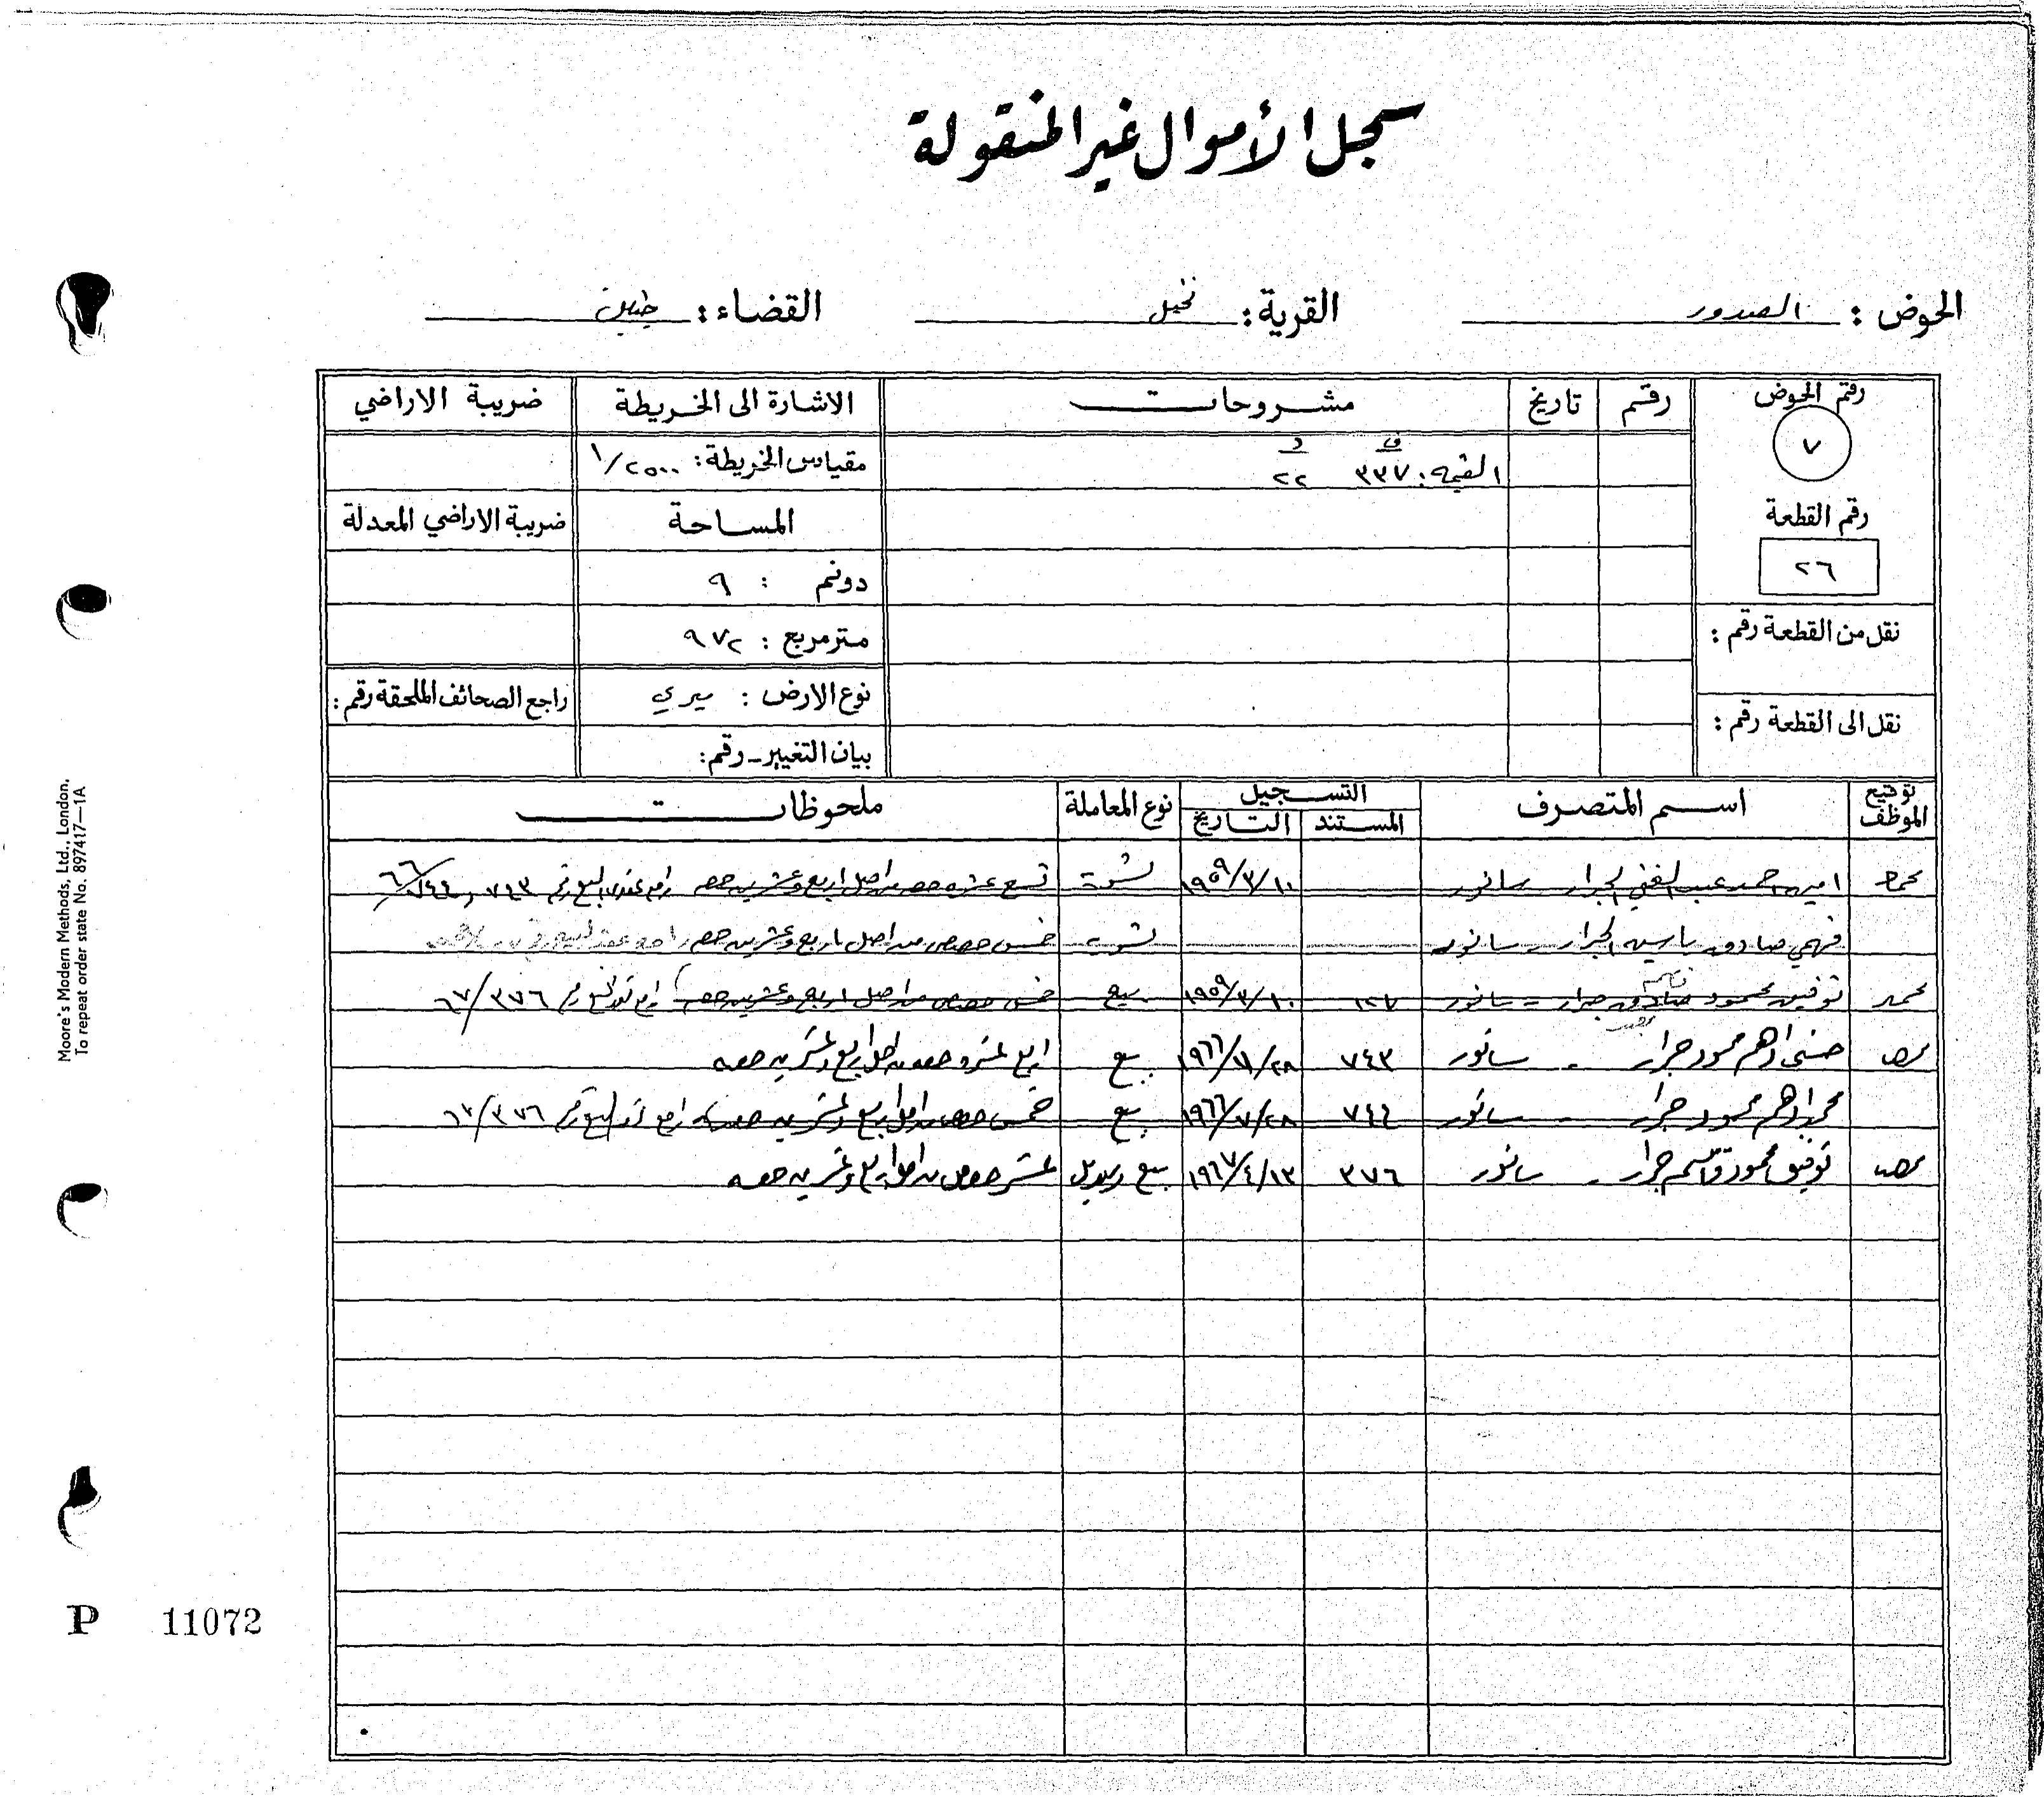 سجل الأموال غير المنقولة
الحوض : الصدور القرية : نخيل القضاء : جنين
رقم الحوض رقم تاريخ مشروحات الاشارة الى الخريطة ضريبة الاراضي
٧
ف د
القيمة : ٣٣٧ ٢٢ مقياس الخريطة : ١/٢٥٠٠
رقم القطعة المساحة ضريبة الاراضي المعدلة
٢٦ دونم : ٩
نقل من القطعة رقم : متر مربع : ٩٧٢
نوع الارض : ميري راجع الصحائف الملحقة رقم :
نقل الى القطعة رقم :
بيان التغيير - رقم :
توقيع الموظف اسم المتصرف التسجيل نوع المعاملة ملحوظات
المستند التاريخ
محمد امين احمد عبد الغني الجرار سانور ١٩٥٩/٣/١٠ تسوية تسع عشرة حصه من اصل اربع وعشرين حصه راجع عقود البيع رقم ٧٤٣ و ٧٤٤/٦٦
فهمي صادق ياسين الجرار - سانور تسوية خمس حصص من اصل اربع وعشرين حصه
محمد توفيق محمود صادق قاسم جرار - سانور ١٢٧ ١٩٥٩/٣/١٠ بيع خمس حصص من اصل اربع وعشرين حصه راجع عقد البيع رقم ٣٧٦/٦٧
حسني ادهم محمود جرار - سانور ٧٤٣ ١٩٦٦/٧/٢٨ بيع اربع عشرة حصه من اصل اربع وعشرين حصه
محمد ادهم محمود جرار - سانور ٧٤٤ ١٩٦٦/٧/٢٨ بيع خمس حصص من اصل اربع وعشرين حصه راجع عقد البيع رقم ٣٧٦/٦٧
توفيق محمود قاسم جرار - سانور ٣٧٦ ١٩٦٧/٤/١٣ بيع وتبديل عشر حصص من اصل اربع وعشرين حصه
Moore's Modern Methods, Ltd., London.
To repeat order state No. 897417—1A
P 11072